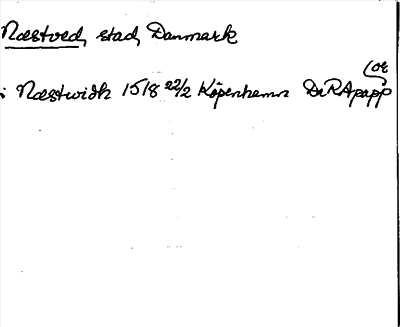 Næstved, stad, Danmark
(or
: Næstwidh 1518 22/2 Köpenhamn DeRApapp